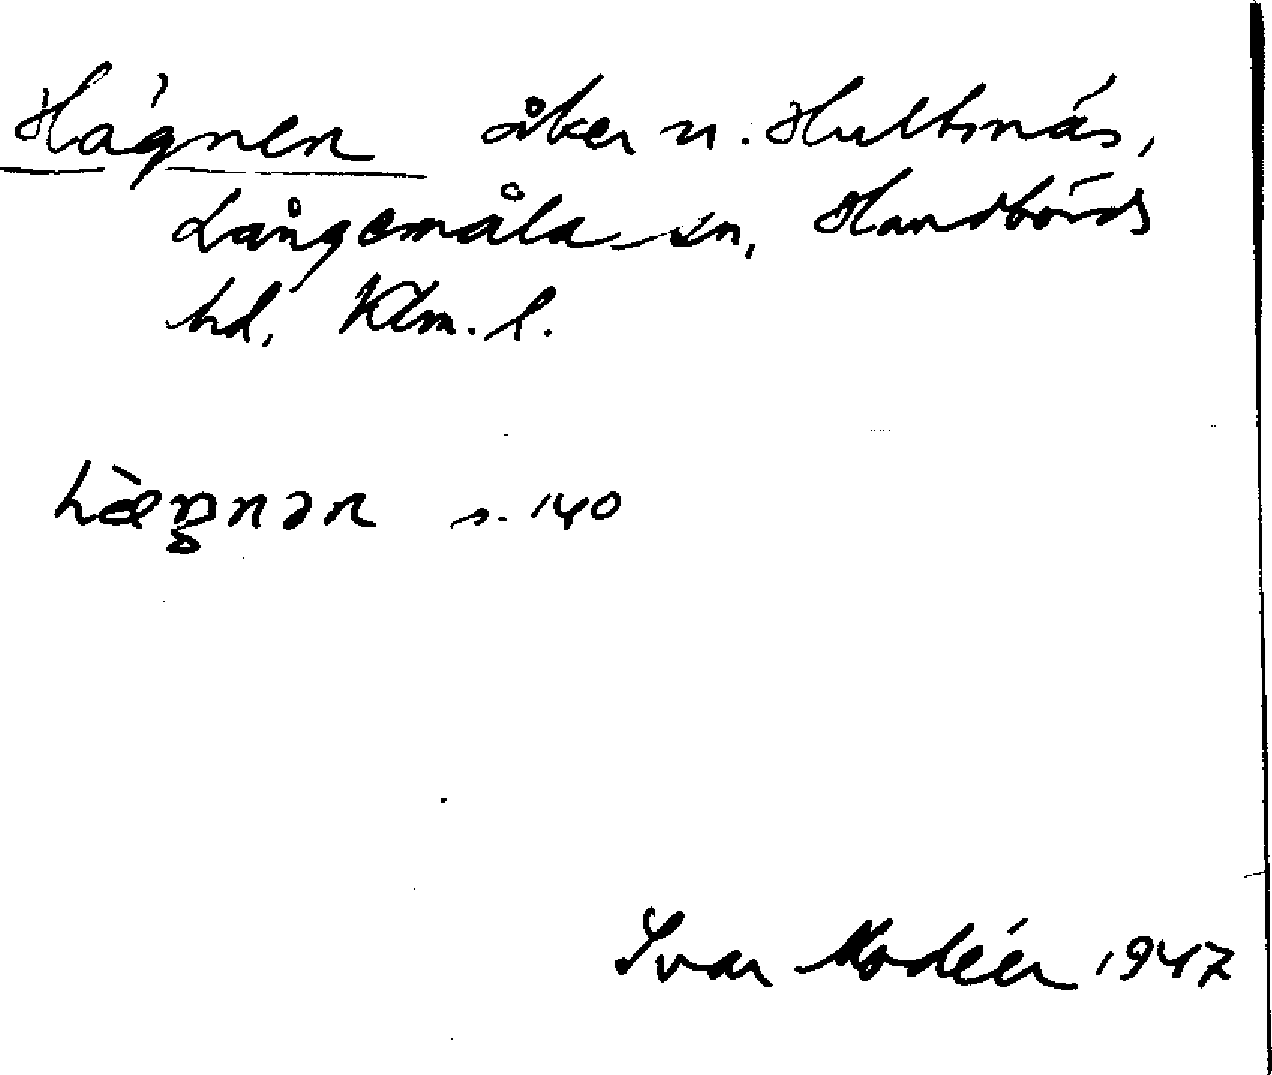 Hägnen åker n. Hultnäs,
Långemåla sn, Handbörds
hd, Klm. l.
hæ̀ŋnən s. 140
Ivar Modéer 1947